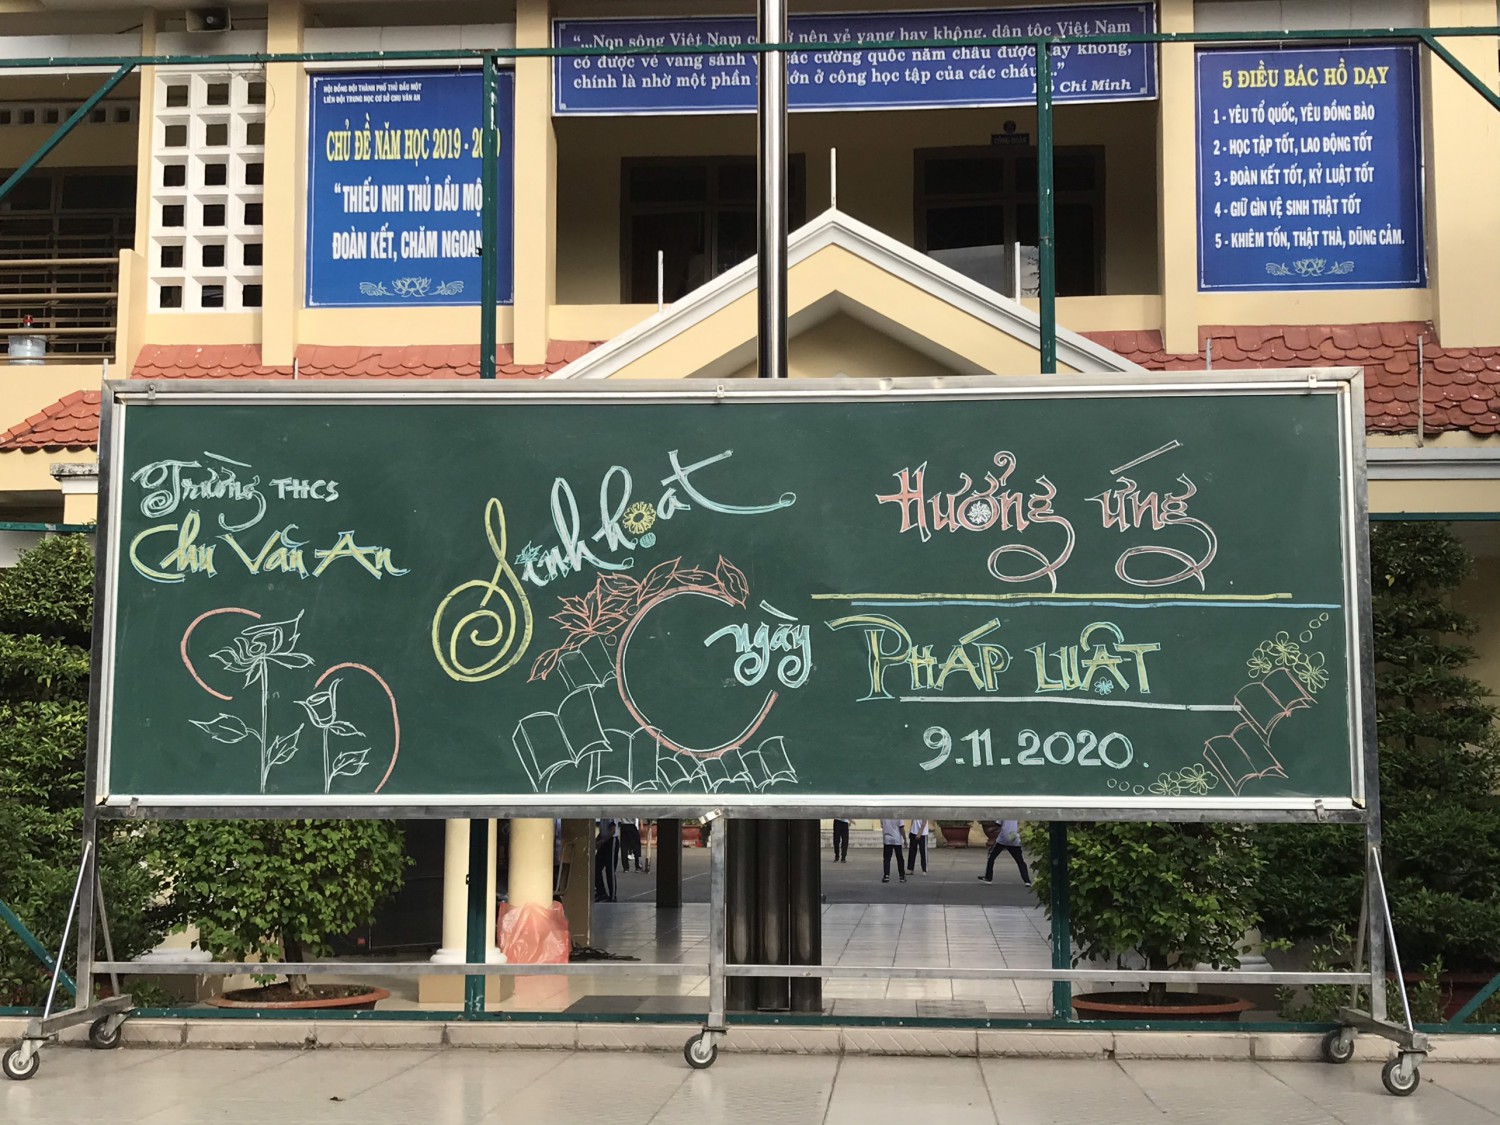 “...Non sông Việt Nam nên vẻ vang hay không, dân tộc Việt Nam
có được vẻ vang sánh các cường quốc năm châu được hay không,
chính là nhờ một phần lớn ở công học tập của các cháu...”
Hồ Chí Minh
HỘI ĐỒNG ĐỘI THÀNH PHỐ THỦ DẦU MỘT
LIÊN ĐỘI TRUNG HỌC CƠ SỞ CHU VĂN AN
CHỦ ĐỀ NĂM HỌC 2019 - 20
“THIẾU NHI THỦ DẦU MỘ
ĐOÀN KẾT, CHĂM NGOAN
5 ĐIỀU BÁC HỒ DẠY
1 - YÊU TỔ QUỐC, YÊU ĐỒNG BÀO
2 - HỌC TẬP TỐT, LAO ĐỘNG TỐT
3 - ĐOÀN KẾT TỐT, KỶ LUẬT TỐT
4 - GIỮ GÌN VỆ SINH THẬT TỐT
5 - KHIÊM TỐN, THẬT THÀ, DŨNG CẢM.
Trường THCS
Chu Văn An
Sinh hoạt
Hưởng ứng
ngày
PHÁP LUẬT
9.11.2020.